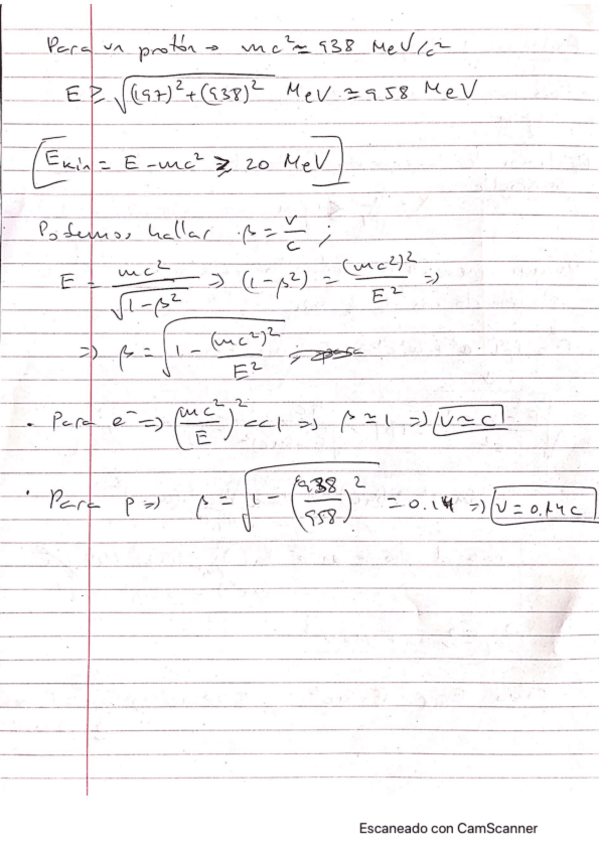 Para un protón → mc² ≃ 938 MeV/c²
E ≥ √((197)² + (938)²) MeV ≃ 958 MeV
[Ekin = E - mc² ≥ 20 MeV]
Podemos hallar β = v/c ;
E = mc²/√(1-β²) ⇒ (1-β²) = (mc²)²/E² ⇒
⇒ β = √(1 - (mc²)²/E²) ;
· Para e⁻ ⇒ (mc²/E)² << 1 ⇒ β ≃ 1 ⇒ v ≃ c
· Para p ⇒ β = √(1 - (938/958)²) = 0.14 ⇒ v = 0.14c
Escaneado con CamScanner